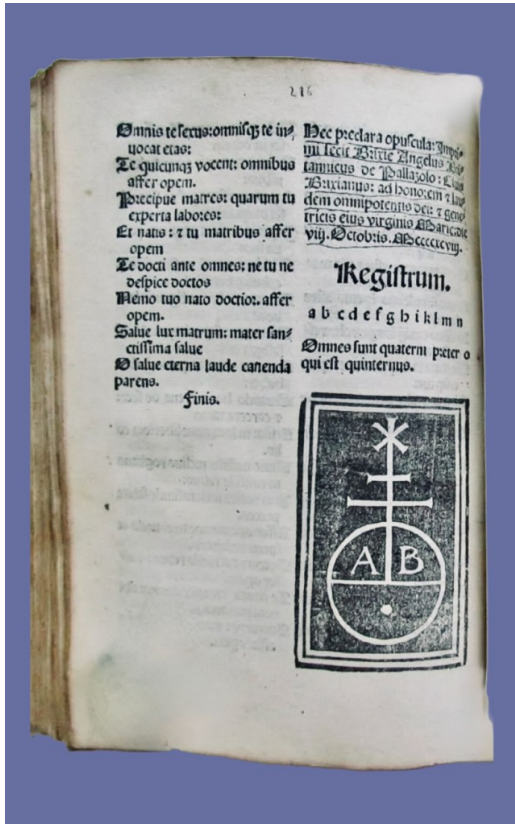 216
Omnis te sexus: omnisq̃ te in,
uocat etas:
Te quicunq̃ vocent: omnibus
affer opem.
Precipue matres: quarum tu
experta labores:
Et natis: ⁊ tu matribus affer
opem
Te docti ante omnes: ne tu ne
despice doctos
Nemo tuo nato doctior. affer
opem.
Salue lux matrum: mater san⸗
ctissima salue
O salue eterna laude canenda
parens.
Finis.
Hec preclara opuscula: Impri⸗
mi fecit Brixie Angelus Bri⸗
tannicus de Pallazolo: Ciuis
Brixianus: ad honorem ⁊ lau
dem omnipotentis dei: ⁊ gene
tricis eius virginis Marie: die
viij. Octobris.
Registrum.
a b c d e f g h i k l m n
Omnes sunt quaterni preter o
qui est quinternus.
A B